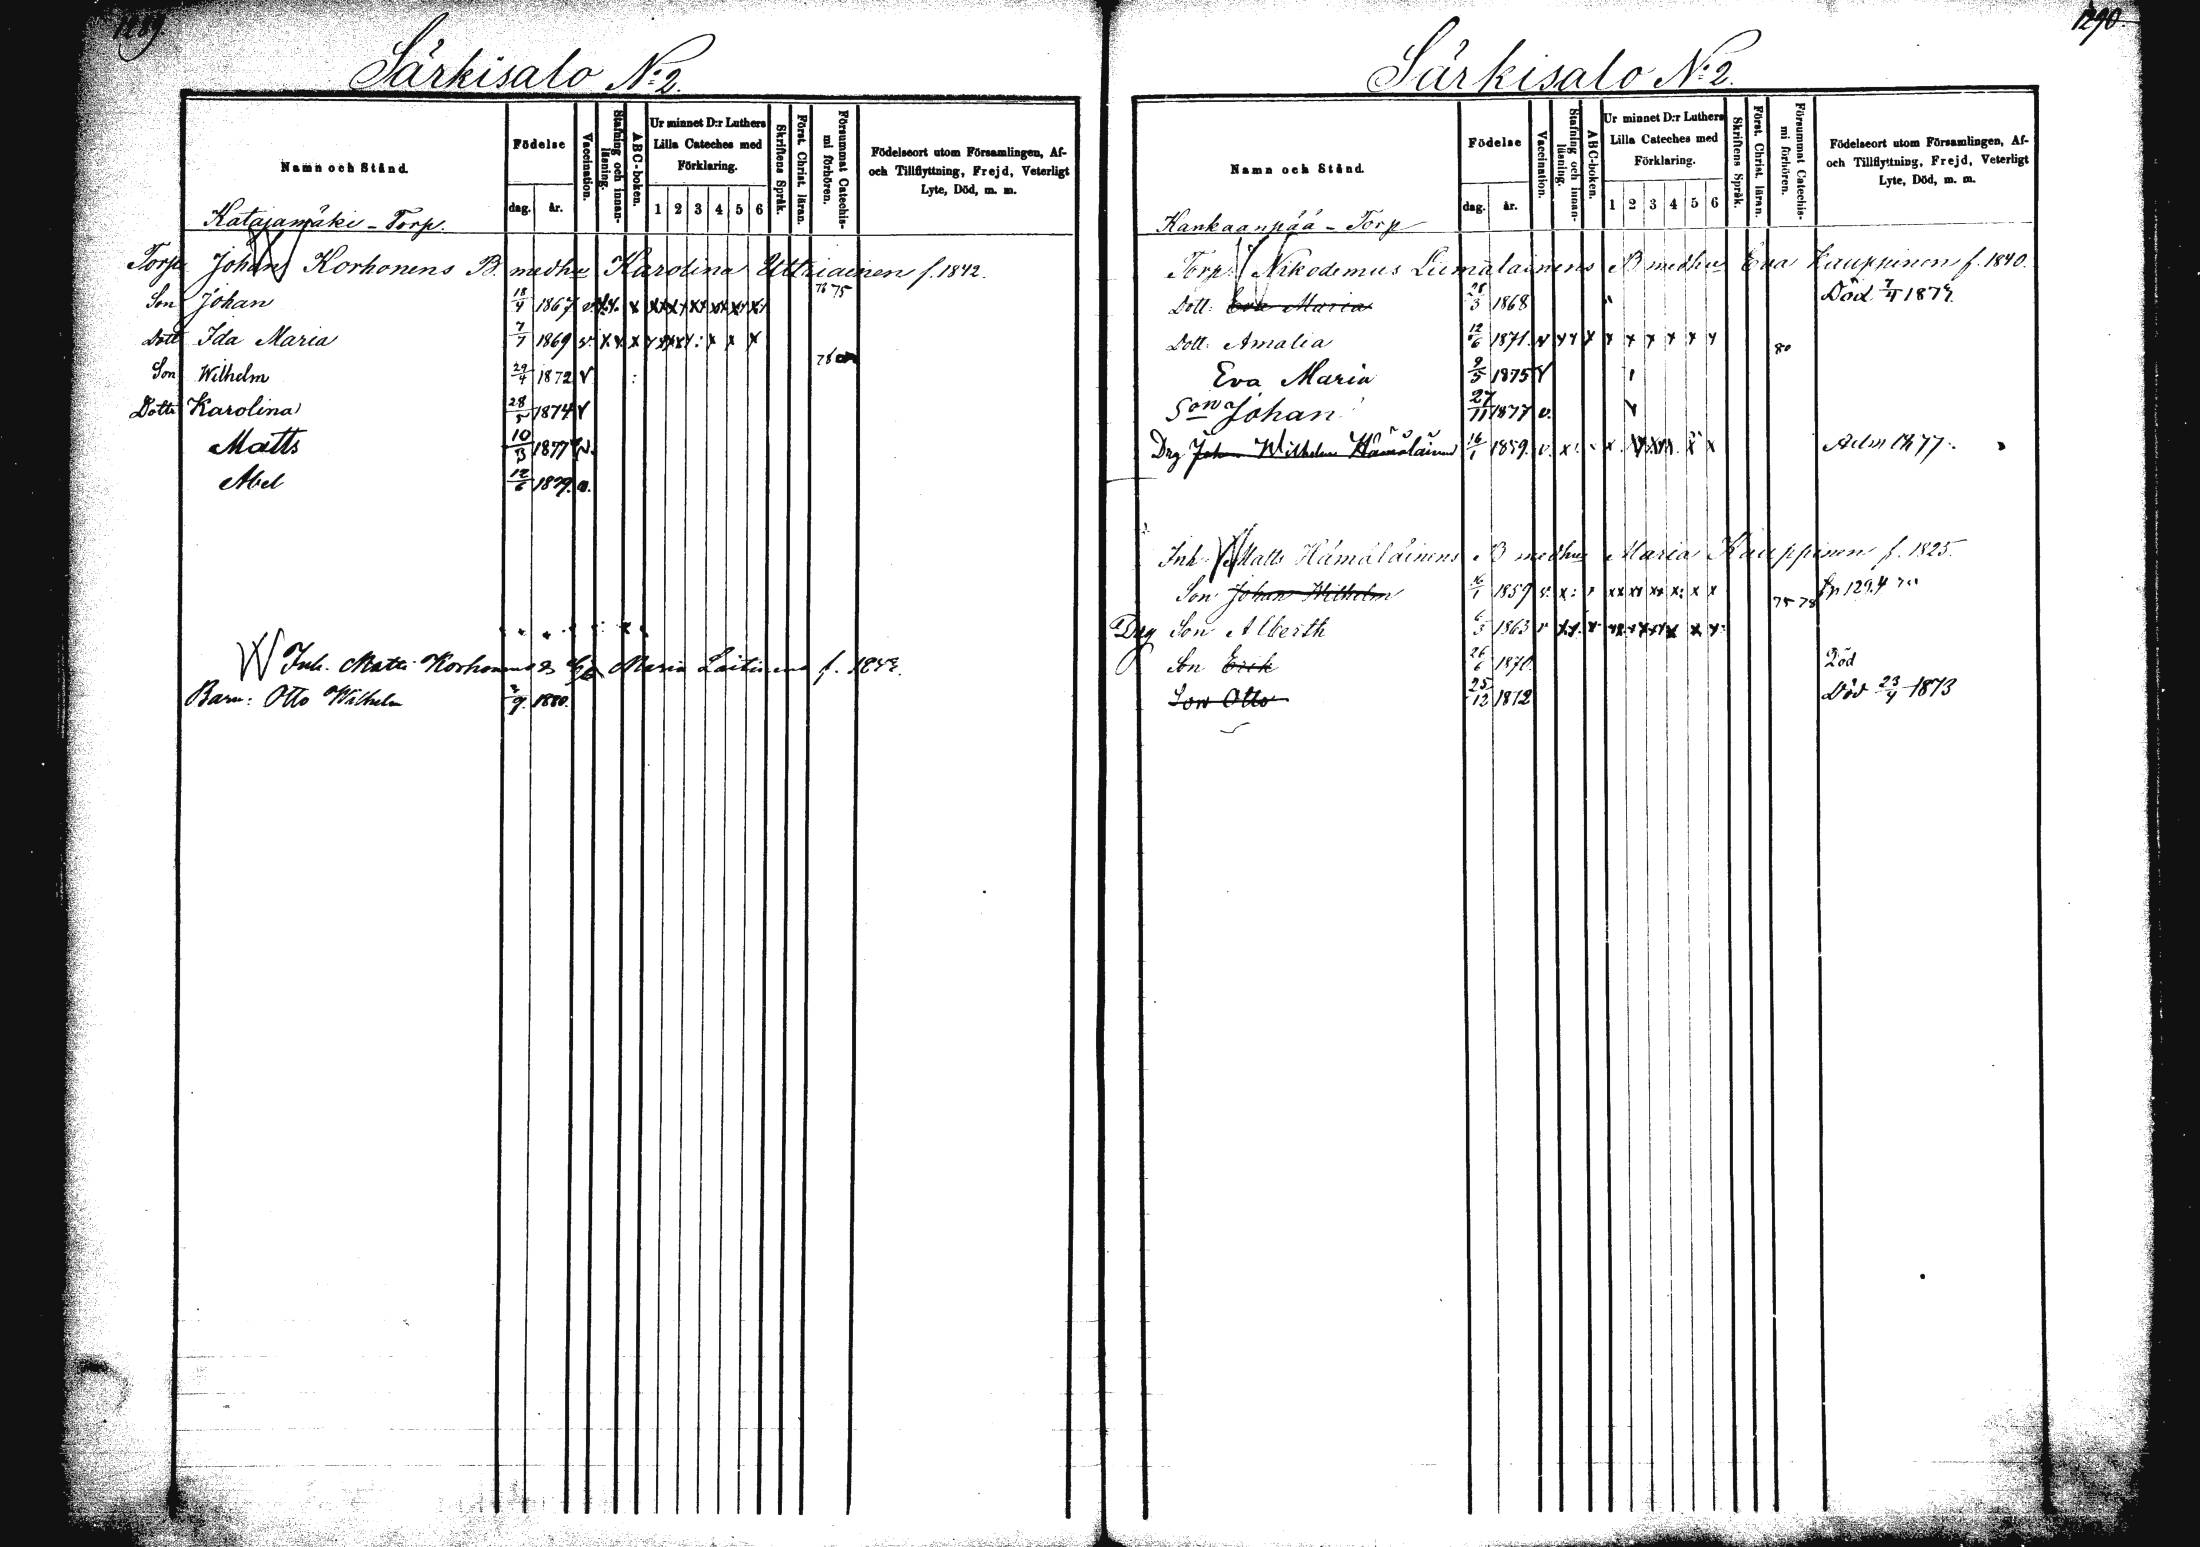 1289
Särkisalo N:2.
Namn och Stånd.
Födelse
dag. år.
Vaccination.
Stafning och innanläsning.
ABC-boken.
Ur minnet D:r Luthers Lilla Cateches med Förklaring.
1 2 3 4 5 6
Skriftens Språk.
Först. Christ. läran.
Försummat Catechismi förhören.
Födelseort utom Församlingen, Af- och Tillflyttning, Frejd, Veterligt Lyte, Död, m. m.
Katajamäki - Torp.
Torp. Johan Korhonens B. med hu Karolina Uttriainen f. 1842.
Son Johan 18/4 1867 75
Dott Ida Maria 7/7 1869
Son Wilhelm 29/4 1872 v
Dottr Karolina 28/5 1874 v
Matts 10/3 1877 v.
Abel 12/6 1879. v.
Inh. Matts Korhonens Maria Laitinens f.
Barn: Otto Wilhelm 2/9. 1880.
1290.
Särkisalo N:2.
Namn och Stånd.
Födelse
dag. år.
Vaccination.
Stafning och innanläsning.
ABC-boken.
Ur minnet D:r Luthers Lilla Cateches med Förklaring.
1 2 3 4 5 6
Skriftens Språk.
Först. Christ. läran.
Försummat Catechismi förhören.
Födelseort utom Församlingen, Af- och Tillflyttning, Frejd, Veterligt Lyte, Död, m. m.
Kankaanpää - Torp
Torp. Nikodemus Liimalainens B med hu Eva Kauppinen f. 1840.
Dott: Eva Maria 28/3 1868 Död 7/4
Dott: Amalia 12/6 1871. 80
Eva Maria 9/5 1875 v
Son Johan 27/11 1877 v.
Drg Johan Wilhelm Hämäläinen 16/1 1859. v.
Inh. Matts Hämäläinens B med hu Maria Kauppinen f. 1825.
Son Johan Wilhelm 16/1 1859 75 78 1294
Drg Son Alberth 6/3 1863
Son Erik 26/6 1870. Död
Son Otto 25/12 1872 Död 23/4 1873